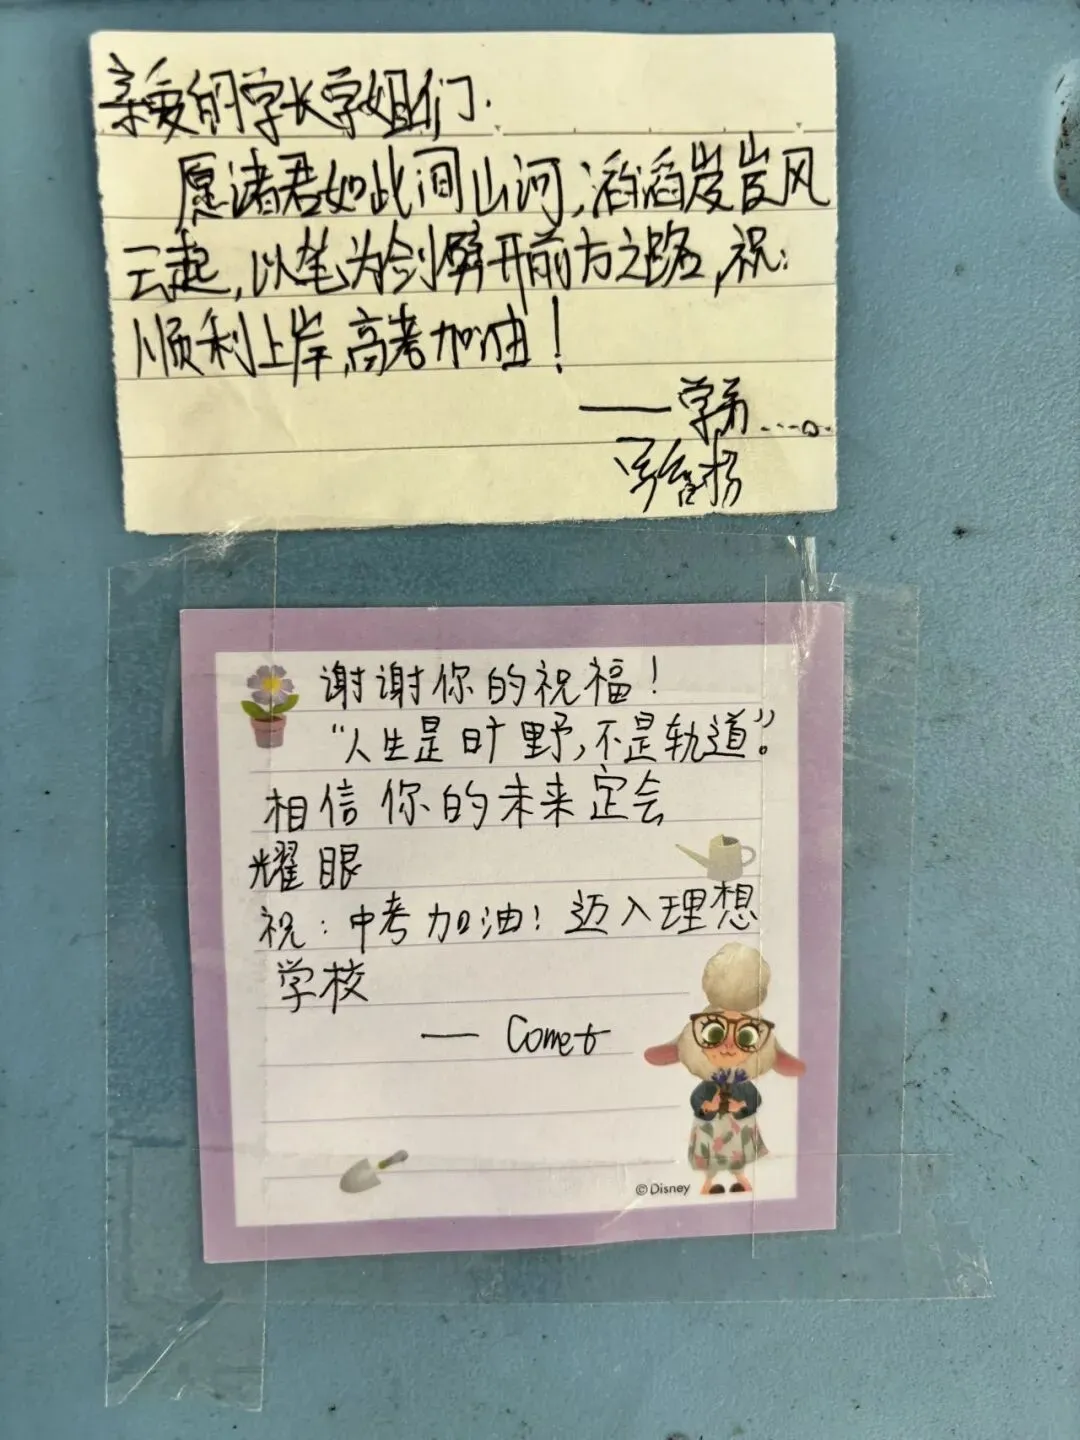 亲爱的学长学姐们.
愿诸君如此间山河,滔滔岌岌风
云起,以笔为剑劈开前方之路,祝:
顺利上岸,高考加油!
——学弟……。
谢谢你的祝福!
“人生是旷野,不是轨道”。
相信你的未来定会
耀眼
祝:中考加油!迈入理想
学校
—— Comet
©Disney